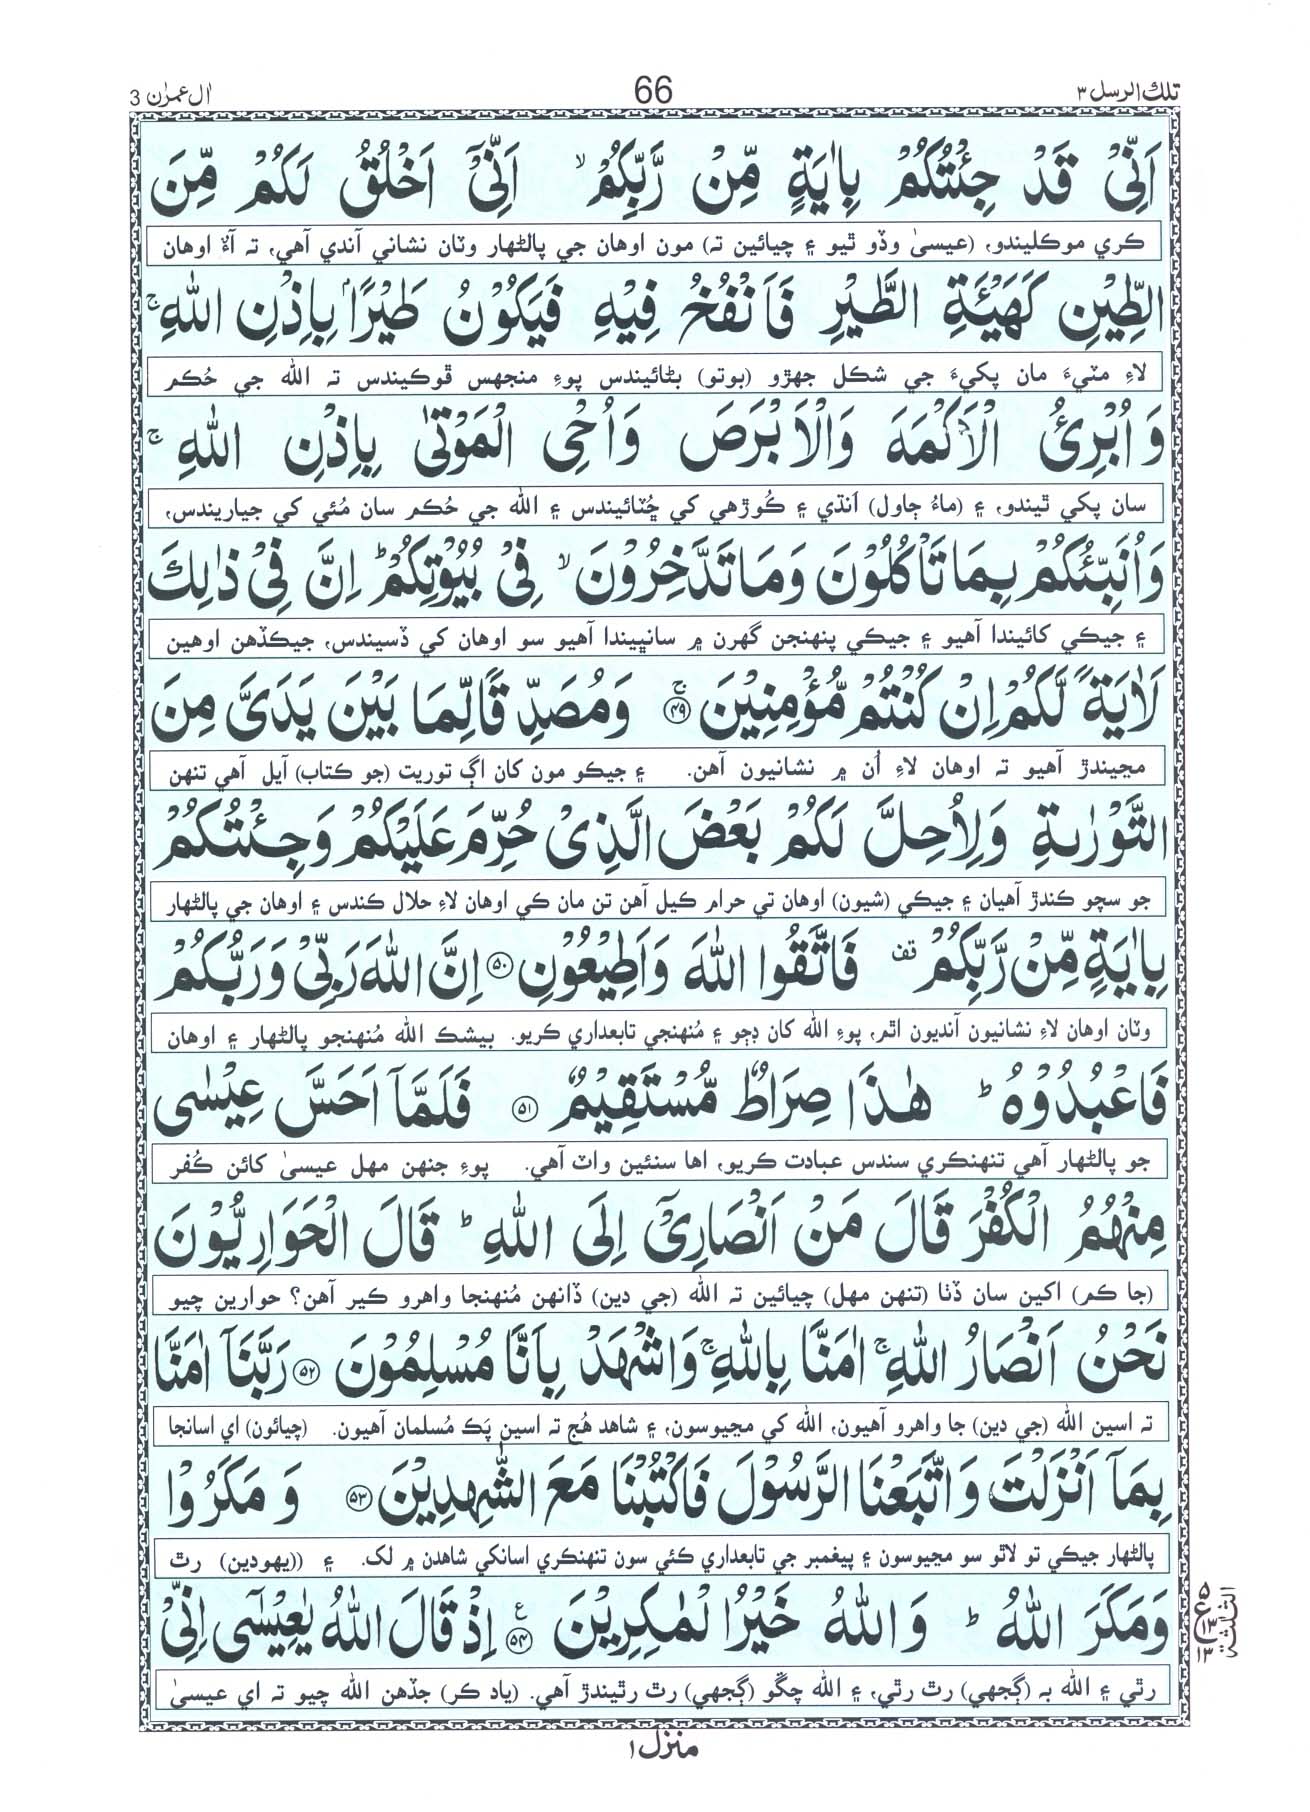 تلك الرسل ۳
66
اٰل عمرٰن 3
اَنِّىْ قَدْ جِئْتُكُمْ بِاٰيَةٍ مِّنْ رَّبِّكُمْ ۙ اَنِّىْۤ اَخْلُقُ لَكُمْ مِّنَ
ڪري موڪليندو، (عيسىٰ وڏو ٿيو ۽ چيائين ته) مون اوهان جي پالڻهار وٽان نشاني آندي آهي، ته آءٌ اوهان
الطِّيْنِ كَهَيْـَٔةِ الطَّيْرِ فَاَنْفُخُ فِيْهِ فَيَكُوْنُ طَيْرًۢا بِاِذْنِ اللّٰهِ ۚ
لاءِ مٽيءَ مان پکيءَ جي شڪل جهڙو (بوتو) بڻائيندس پوءِ منجهس ڦوڪيندس ته الله جي حُڪم
وَاُبْرِئُ الْاَكْمَهَ وَالْاَبْرَصَ وَاُحْىِ الْمَوْتٰى بِاِذْنِ اللّٰهِ ۚ
سان پکي ٿيندو، ۽ (ماءُ ڄاول) اَنڌي ۽ ڪُوڙهي کي ڇُٽائيندس ۽ الله جي حُڪم سان مُئي کي جياريندس،
وَاُنَبِّئُكُمْ بِمَا تَاْكُلُوْنَ وَمَا تَدَّخِرُوْنَ ۙ فِىْ بُيُوْتِكُمْ ؕ اِنَّ فِىْ ذٰلِكَ
۽ جيڪي کائيندا آهيو ۽ جيڪي پنهنجن گهرن ۾ سانڀيندا آهيو سو اوهان کي ڏسيندس، جيڪڏهن اوهين
لَاٰيَةً لَّكُمْ اِنْ كُنْتُمْ مُّؤْمِنِيْنَ ۚ ﴿۴۹﴾ وَمُصَدِّقًا لِّمَا بَيْنَ يَدَىَّ مِنَ
مڃيندڙ آهيو ته اوهان لاءِ اُن ۾ نشانيون آهن. ۽ جيڪو مون کان اڳ توريت (جو ڪتاب) آيل آهي تنهن
التَّوْرٰىةِ وَلِاُحِلَّ لَكُمْ بَعْضَ الَّذِىْ حُرِّمَ عَلَيْكُمْ وَجِئْتُكُمْ
جو سچو ڪندڙ آهيان ۽ جيڪي (شيون) اوهان تي حرام ڪيل آهن تن مان ڪي اوهان لاءِ حلال ڪندس ۽ اوهان جي پالڻهار
بِاٰيَةٍ مِّنْ رَّبِّكُمْ قف فَاتَّقُوا اللّٰهَ وَاَطِيْعُوْنِ ﴿۵۰﴾ اِنَّ اللّٰهَ رَبِّىْ وَرَبُّكُمْ
وٽان اوهان لاءِ نشانيون آنديون اٿم، پوءِ الله کان ڊڄو ۽ مُنهنجي تابعداري ڪريو. بيشڪ الله مُنهنجو پالڻهار ۽ اوهان
فَاعْبُدُوْهُ ؕ هٰذَا صِرَاطٌ مُّسْتَقِيْمٌ ﴿۵۱﴾ فَلَمَّاۤ اَحَسَّ عِيْسٰى
جو پالڻهار آهي تنهنڪري سندس عبادت ڪريو، اها سنئين واٽ آهي. پوءِ جنهن مهل عيسىٰ کائن ڪُفر
مِنْهُمُ الْكُفْرَ قَالَ مَنْ اَنْصَارِىْۤ اِلَى اللّٰهِ ؕ قَالَ الْحَوَارِيُّوْنَ
(جا ڪم) اکين سان ڏٺا (تنهن مهل) چيائين ته الله (جي دين) ڏانهن مُنهنجا واهرو ڪير آهن؟ حوارين چيو
نَحْنُ اَنْصَارُ اللّٰهِ ۚ اٰمَنَّا بِاللّٰهِ ۚ وَاشْهَدْ بِاَنَّا مُسْلِمُوْنَ ﴿۵۲﴾ رَبَّنَاۤ اٰمَنَّا
ته اسين الله (جي دين) جا واهرو آهيون، الله کي مڃيوسون، ۽ شاهد هُج ته اسين پَڪ مُسلمان آهيون. (چيائون) اي اسانجا
بِمَاۤ اَنْزَلْتَ وَاتَّبَعْنَا الرَّسُوْلَ فَاكْتُبْنَا مَعَ الشّٰهِدِيْنَ ﴿۵۳﴾ وَمَكَرُوْا
پالڻهار جيڪي تو لاٿو سو مڃيوسون ۽ پيغمبر جي تابعداري ڪئي سون تنهنڪري اسانکي شاهدن ۾ لک. ۽ ((يهودين) رٿ
وَمَكَرَ اللّٰهُ ؕ وَاللّٰهُ خَيْرُ الْمٰكِرِيْنَ ﴿۵۴﴾ ع اِذْ قَالَ اللّٰهُ يٰعِيْسٰٓى اِنِّىْ
الثلثة ۵ ع ۱۳ ۱۳
رٿي ۽ الله به (ڳجهي) رٿ رٿي، ۽ الله چڱو (ڳجهي) رٿ رٿيندڙ آهي. (ياد ڪر) جڏهن الله چيو ته اي عيسىٰ
منزل ۱